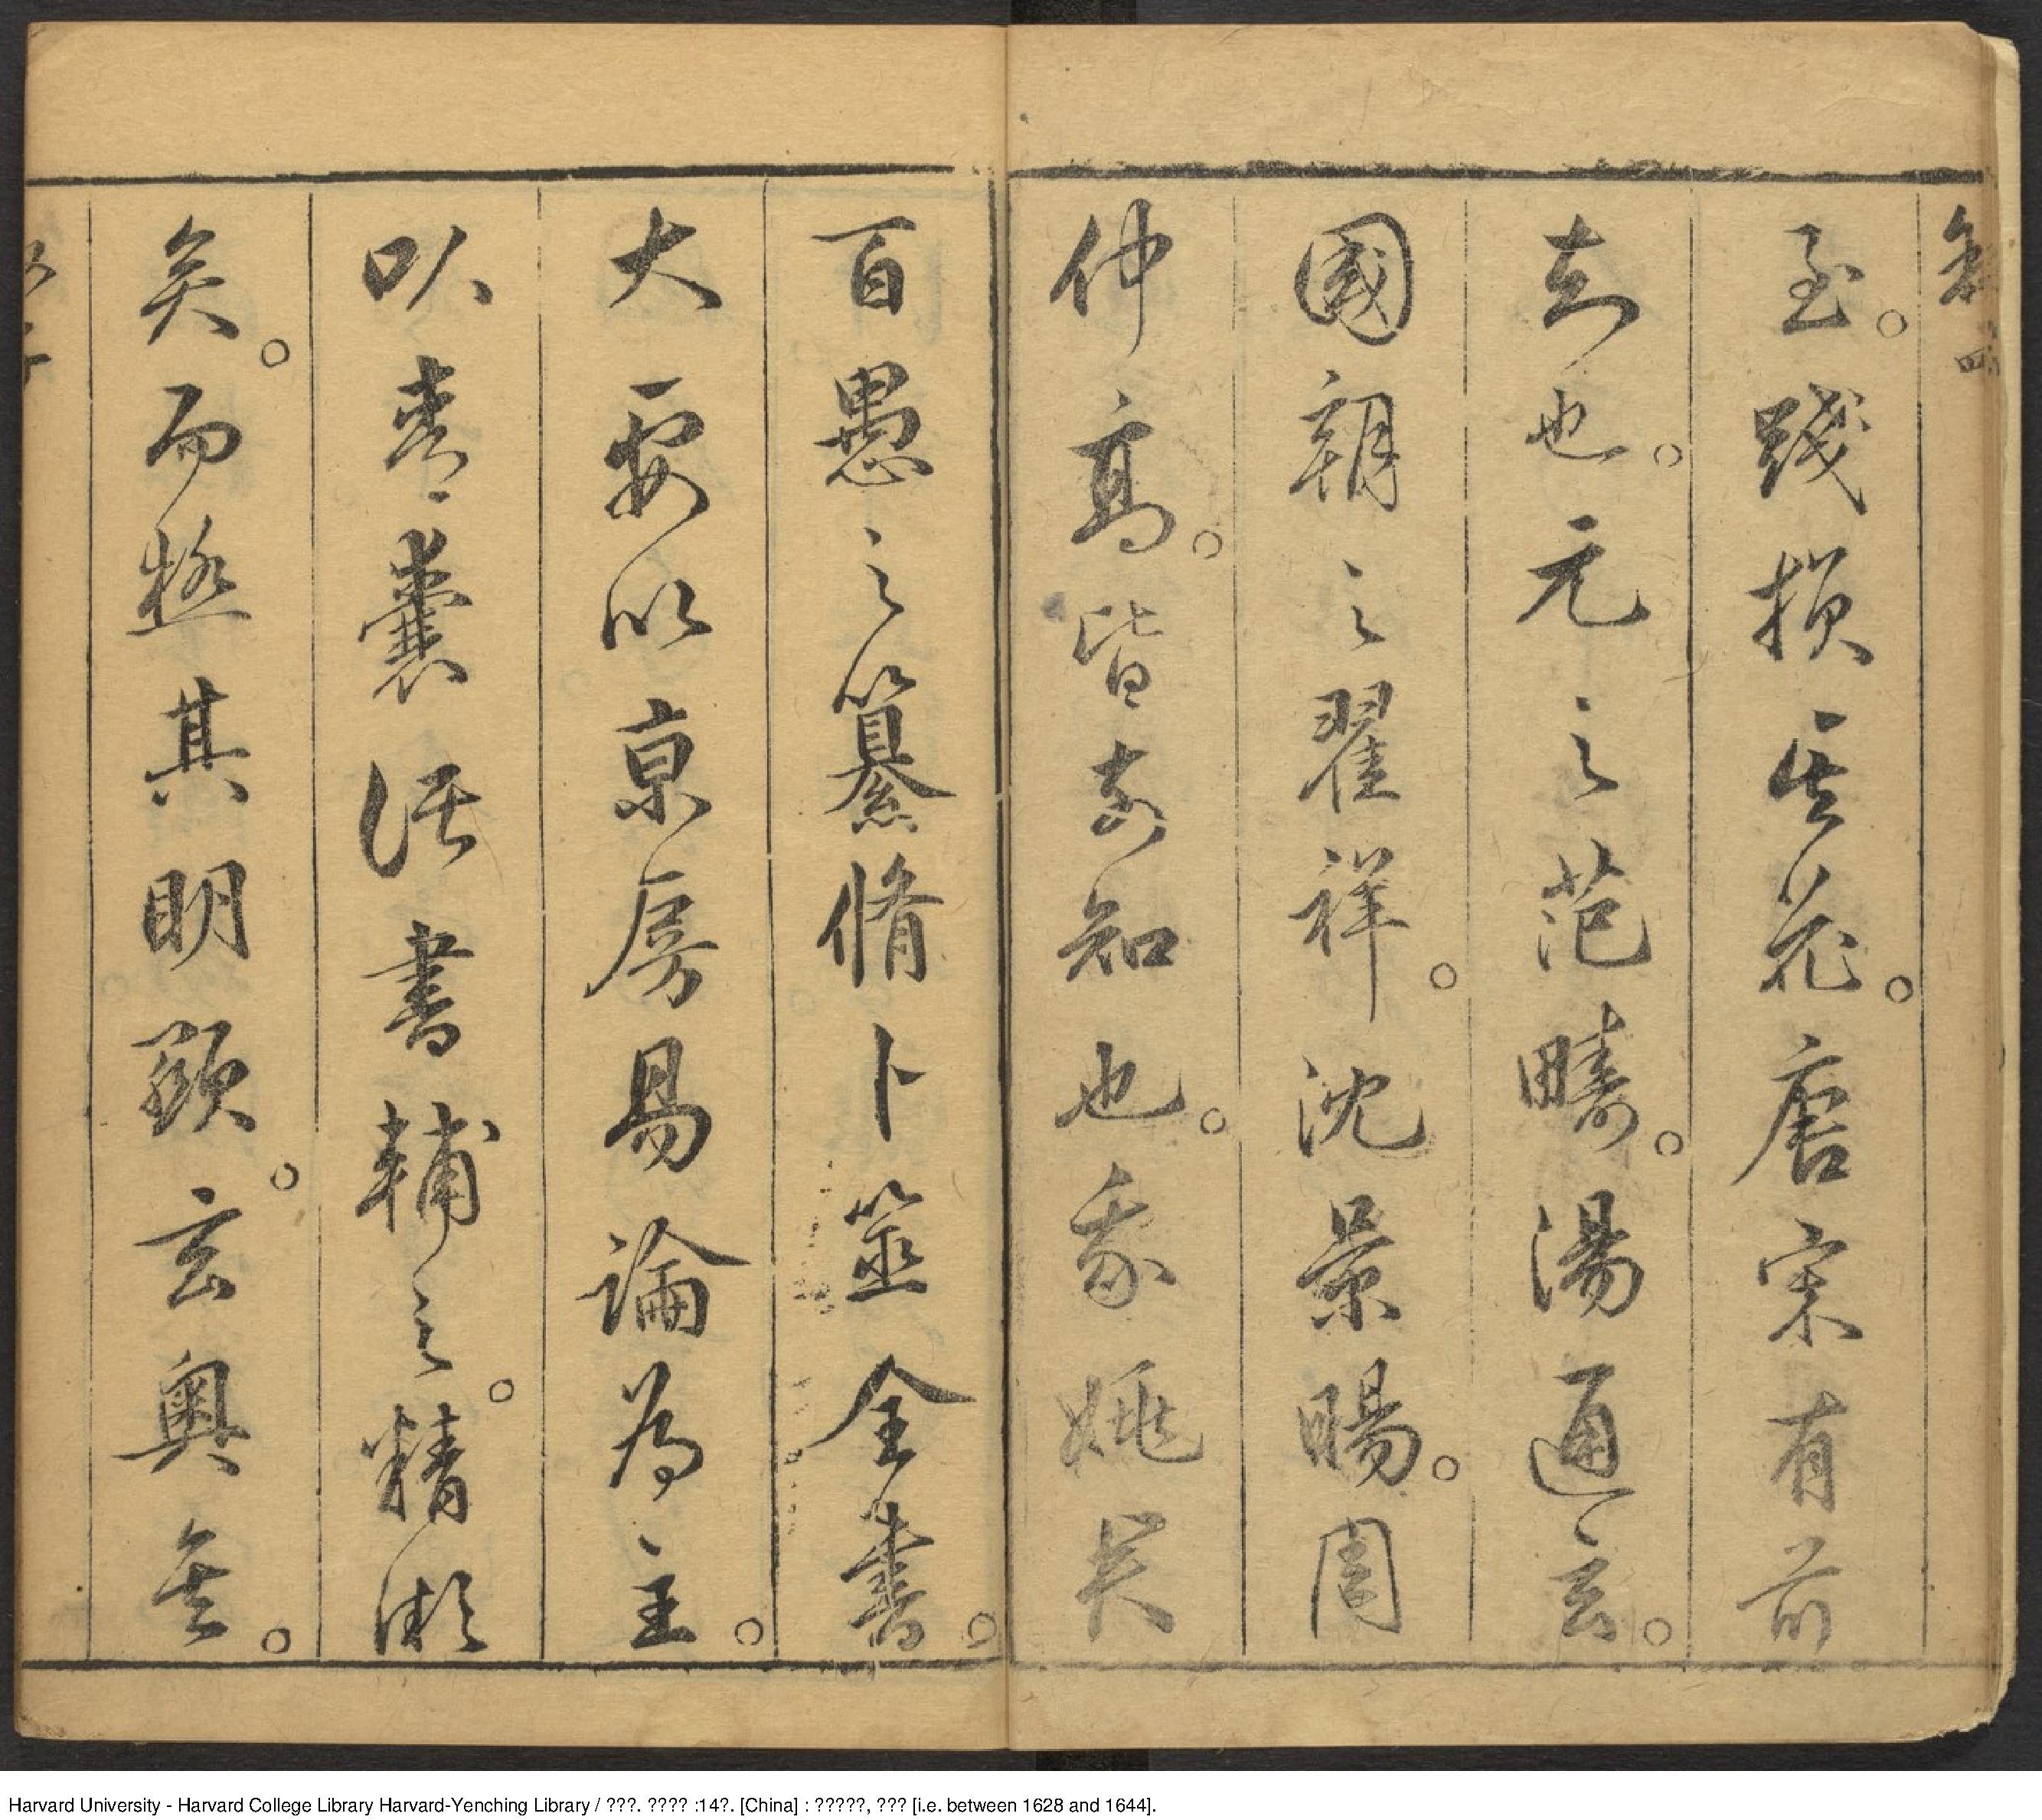 至。踐損其花。唐宋有前
也。元之范疇。湯通玄。
國朝之翟祥。沈景暘。周
仲高。皆知也。我姚
百愚之纂脩卜筮全書。
大要以京房易論為主。
以青囊諸書輔之。精微
矣。而極其明顯。玄奧矣。
Harvard University - Harvard College Library Harvard-Yenching Library / ???. ???? :14?. [China] : ?????, ??? [i.e. between 1628 and 1644].